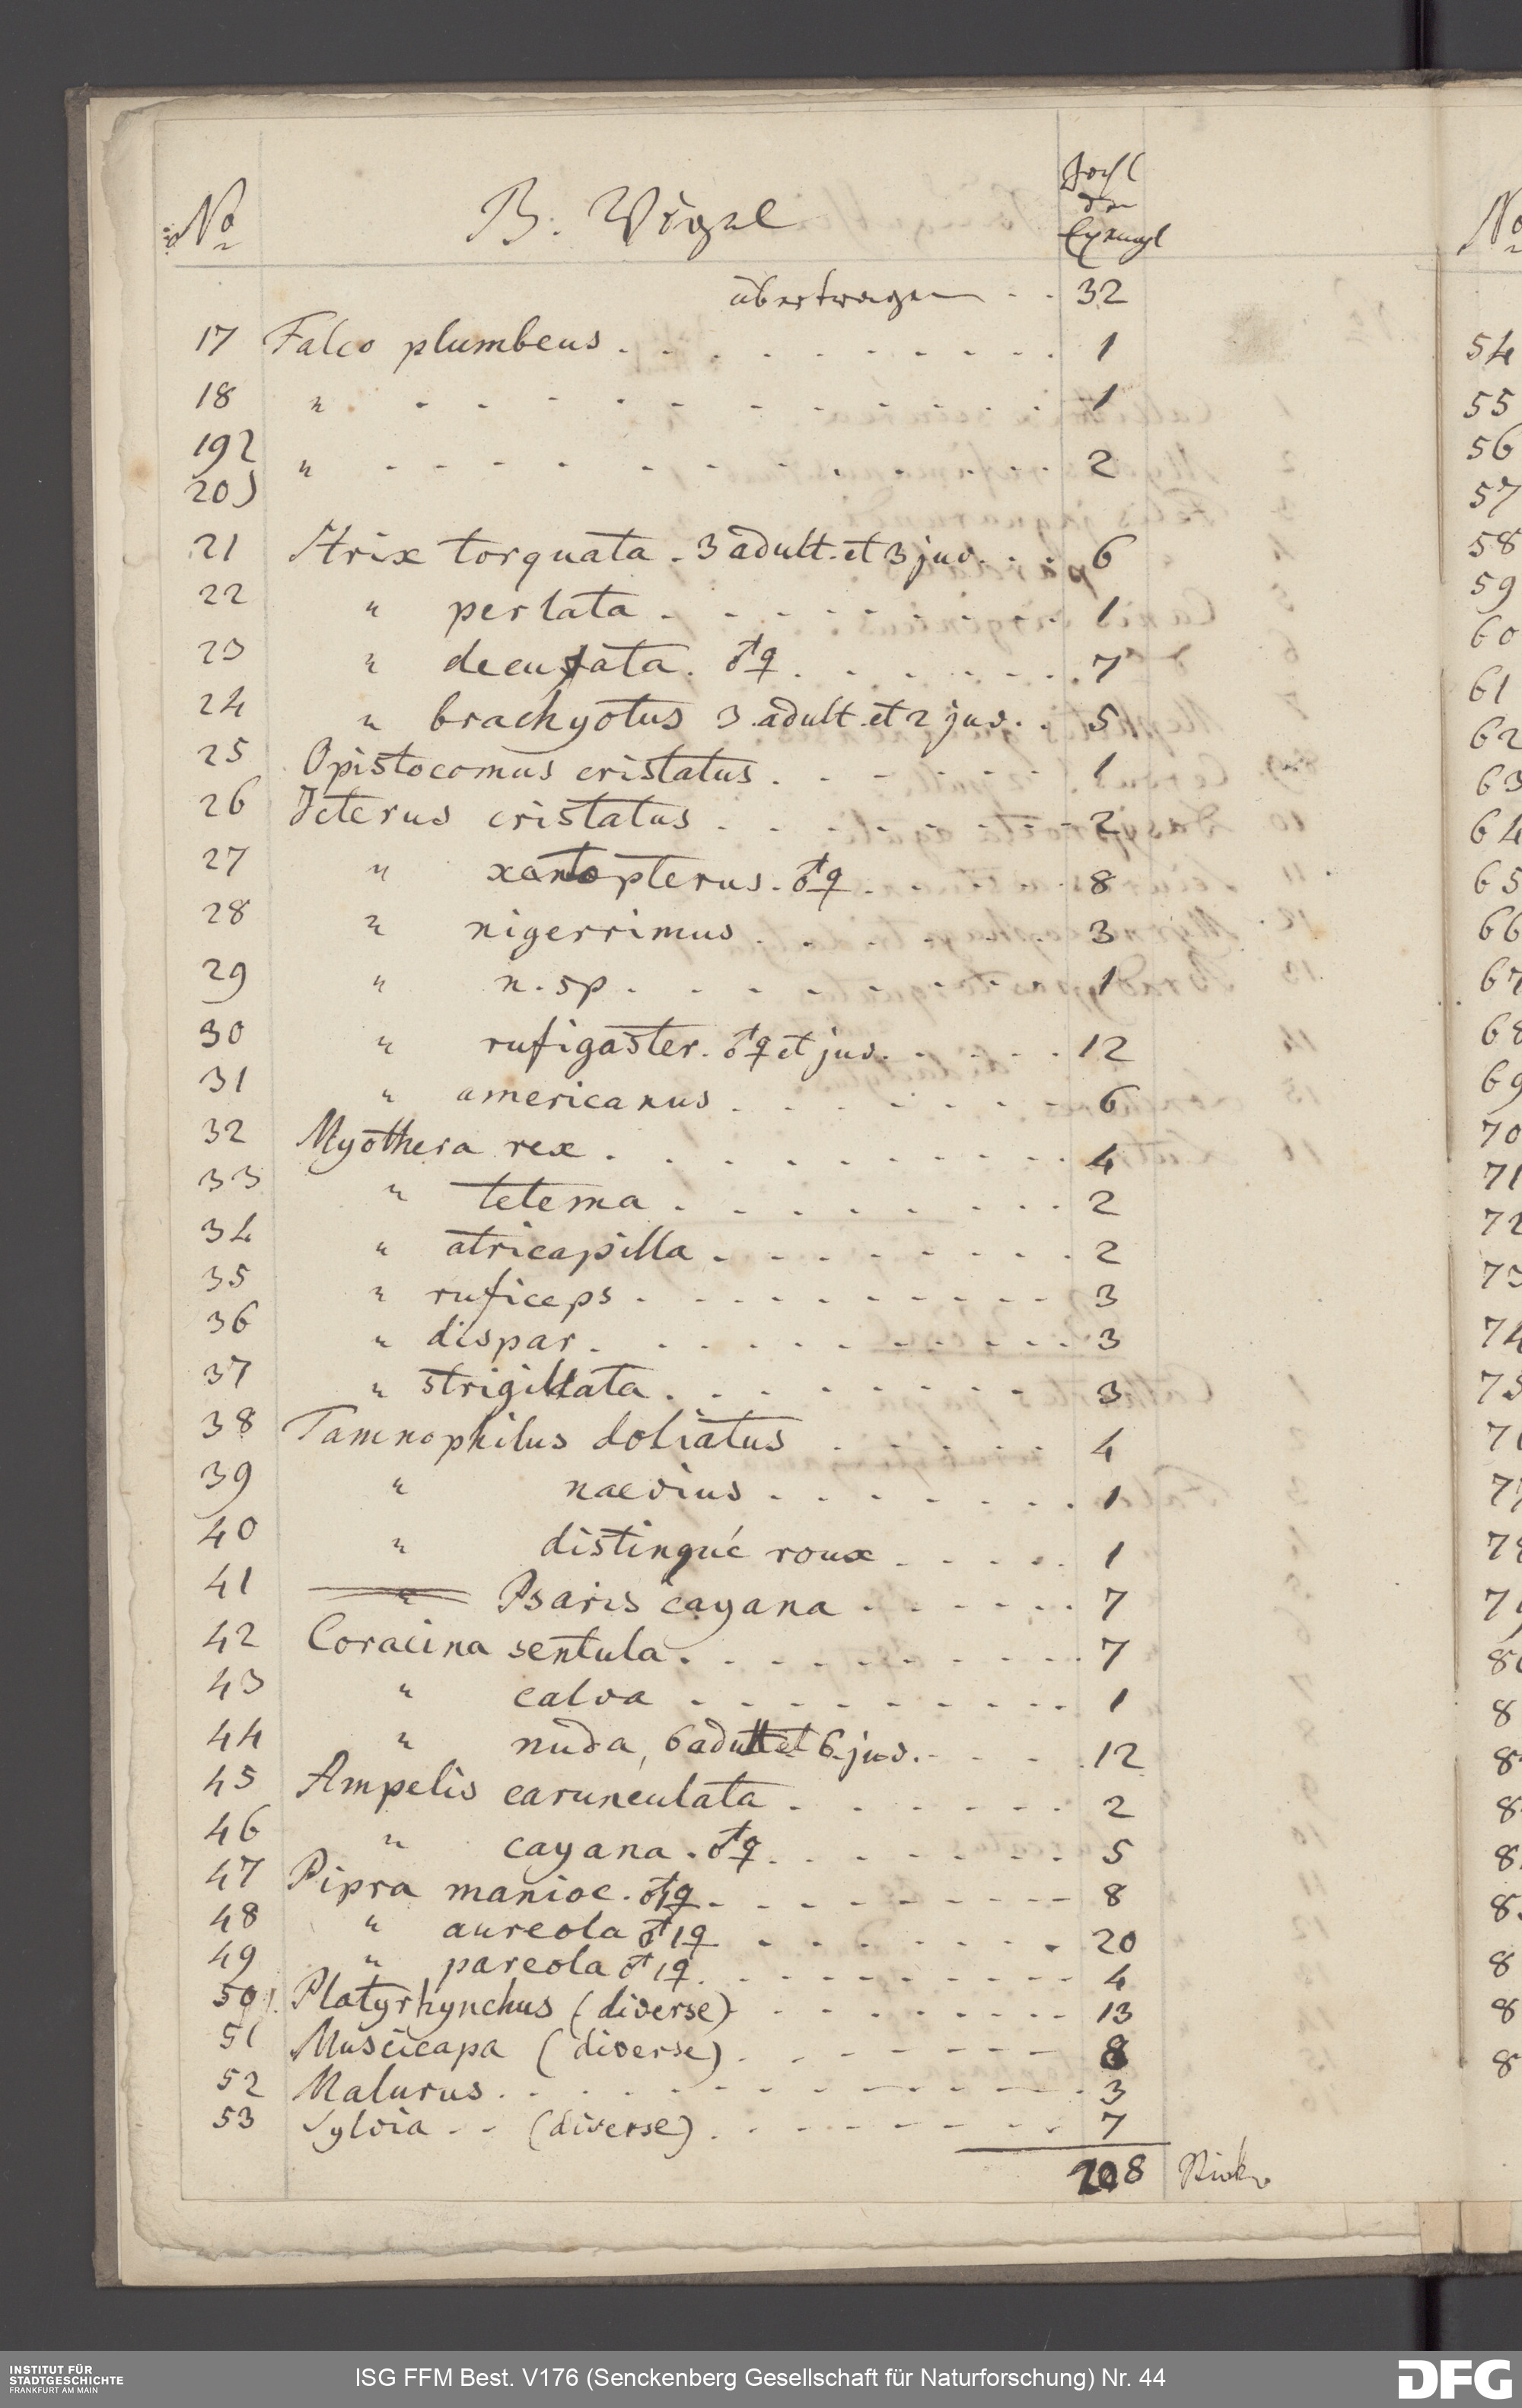 No B. Vögel Zahl
der
Exempl
übertragen . . 32
17 Falco plumbeus . . . . . . . . . 1
18 " - - - - - - - - - - 1
19 " - - - - - - - - - - 2
20
21 Strix torquata . 3 adult. et 3 juv. . . 6
22 " perlata . - - - - - - - 1
23 " decussata . ♂♀ . . . . . . 7
24 " brachyotus 3 adult. et 2 juv. . 5
25 Opistocomus cristatus . . . . . . 1
26 Icterus cristatus . . . . . . . 2
27 " xantopterus . ♂♀ . . . . . 8
28 " nigerrimus . . . . . . 3
29 " n. sp . . . . . . . . 1
30 " rufigaster . ♂♀ et juv. . . . . 12
31 " americanus . . . . . . . 6
32 Myothera rex . . . . . . . . . 4
33 " tetema . . . . . . . . 2
34 " atricapilla . . . . . . . . 2
35 " ruficeps . . . . . . . . . 3
36 " dispar . . . . . . . . . 3
37 " strigillata . . . . . . . . 3
38 Tamnophilus doliatus . . . . . 4
39 " naevius . . . . . . . 1
40 " distingué roux . . . . . 1
41 " Psaris cayana . . . . . . 7
42 Coracina sentula . . . . . . . . 7
43 " calva . . . . . . . . 1
44 " nuda, 6 adult et 6 juv. . . . 12
45 Ampelis carunculata . . . . . . 2
46 " cayana . ♂♀ . . . . . . 5
47 Pipra manioc . ♂♀ . . . . . . . 8
48 " aureola ♂, ♀ . . . . . . . 20
49 " pareola ♂, ♀ . . . . . . . 4
50 Platyrhynchus (diverse) . . . . . . 13
51 Muscicapa (diverse) . . . . . . 8
52 Malurus . . . . . . . . . . . 3
53 Sylvia . . (diverse) . . . . . . . 7
208
No
54
55
56
57
58
59
60
61
62
63
64
65
66
67
68
69
70
71
72
73
74
75
INSTITUT FÜR
STADTGESCHICHTE
FRANKFURT AM MAIN
ISG FFM Best. V176 (Senckenberg Gesellschaft für Naturforschung) Nr. 44
DFG